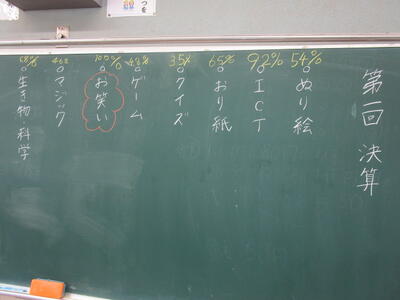 第一回 決算
54%
○ぬり絵
92%
○ICT
65%
○おり紙
35%
○クイズ
○ゲーム
100%
○お笑い
○マジック
58%
○生き物・科学